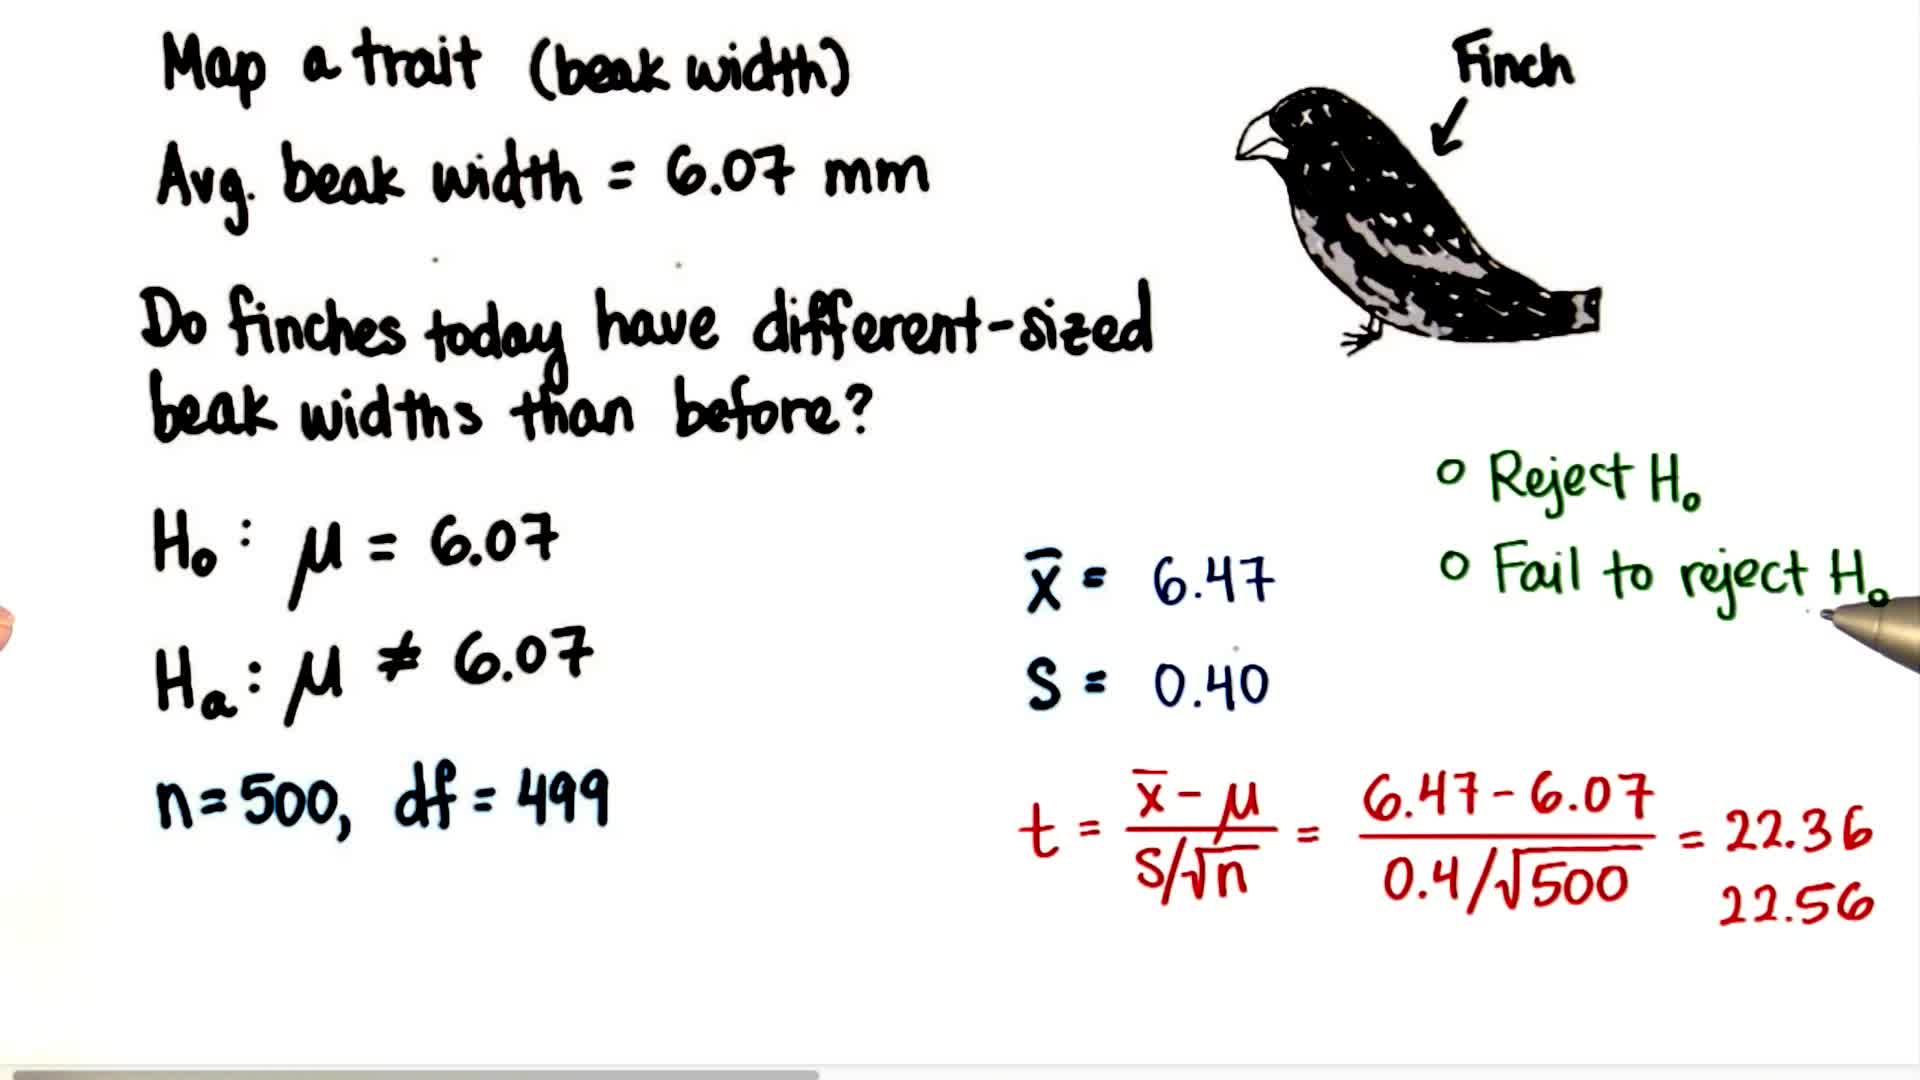 Map a trait (beak width)
Avg. beak width = 6.07 mm
Finch
Do finches today have different-sized
beak widths than before?
H₀: μ = 6.07
Hₐ: μ ≠ 6.07
n=500, df = 499
o Reject H₀
o Fail to reject H₀
x̄ = 6.47
S = 0.40
t = (x̄ - μ)/(S/√n) = (6.47 - 6.07)/(0.4/√500) = 22.36
22.56